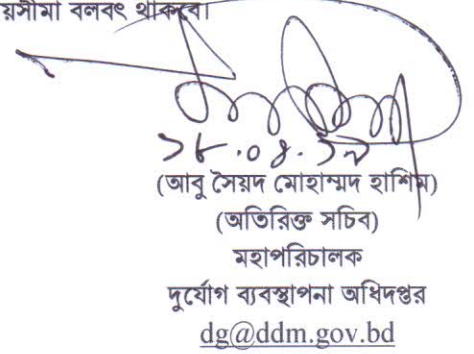 য়সীমা বলবৎ থাকবে।
(আবু সৈয়দ মোহাম্মদ হাশিম)
(অতিরিক্ত সচিব)
মহাপরিচালক
দুর্যোগ ব্যবস্থাপনা অধিদপ্তর
dg@ddm.gov.bd